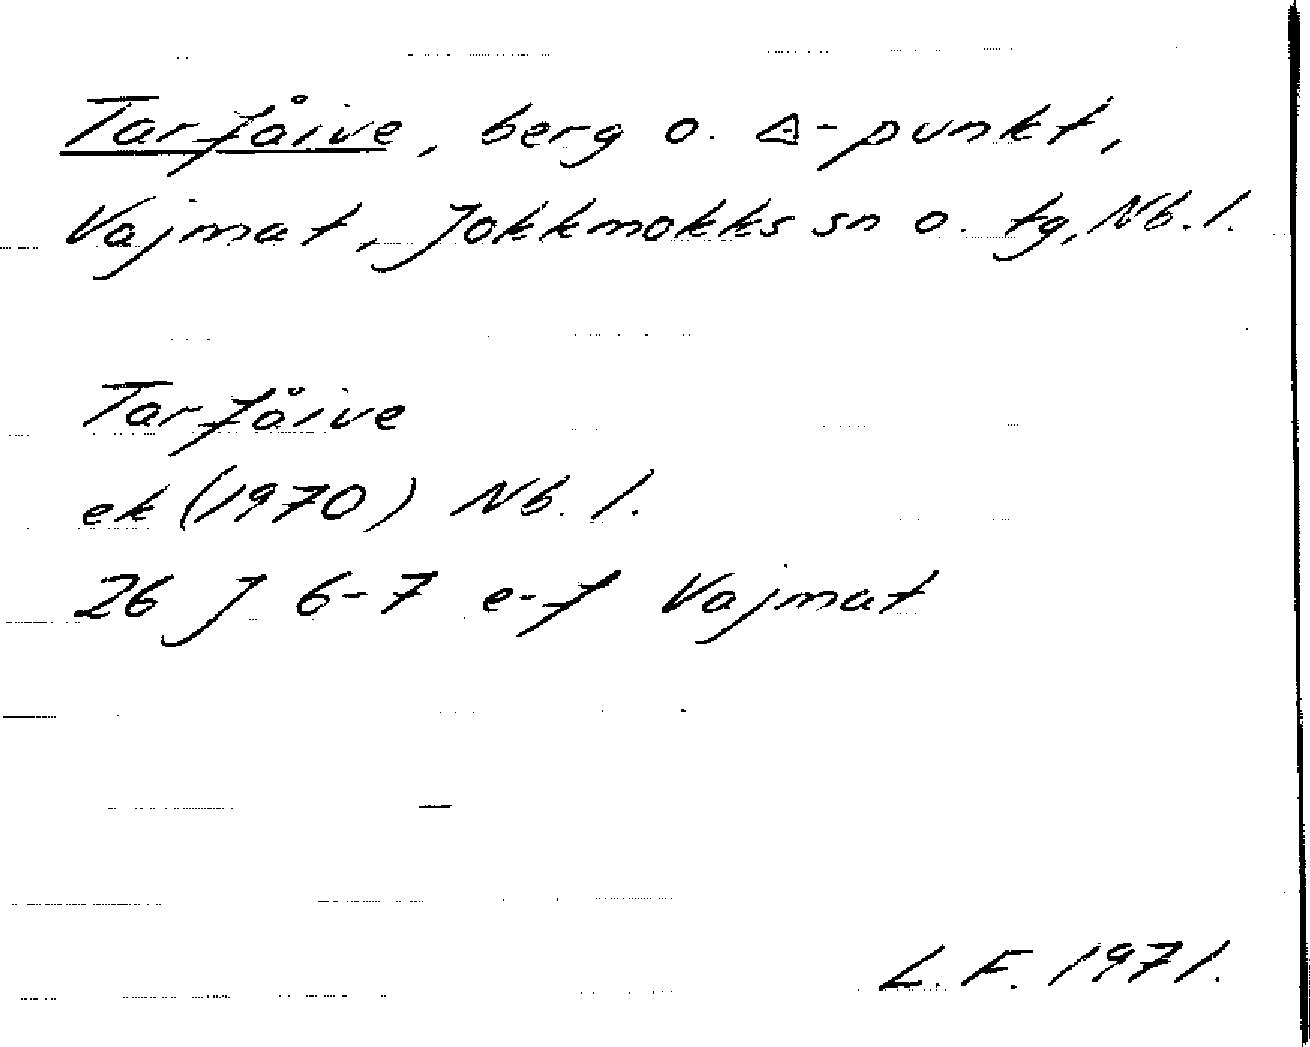 Tarfåive, berg o. △-punkt,
Vajmat, Jokkmokks sn o. tg, Nb. l.
Tarfåive
ek (1970) Nb. l.
26 J 6-7 e-f Vajmat
L. F. 1971.